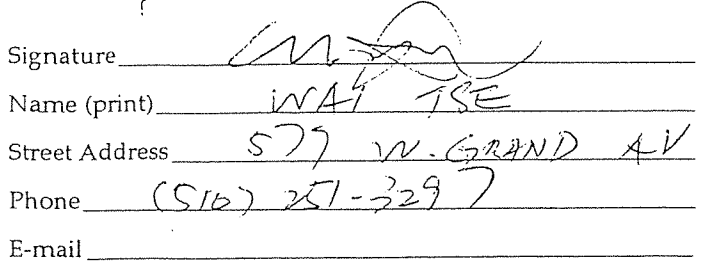 Signature
Name (print) WAI TSE
Street Address 579 W. GRAND AV
Phone (510) 251-3297
E-mail